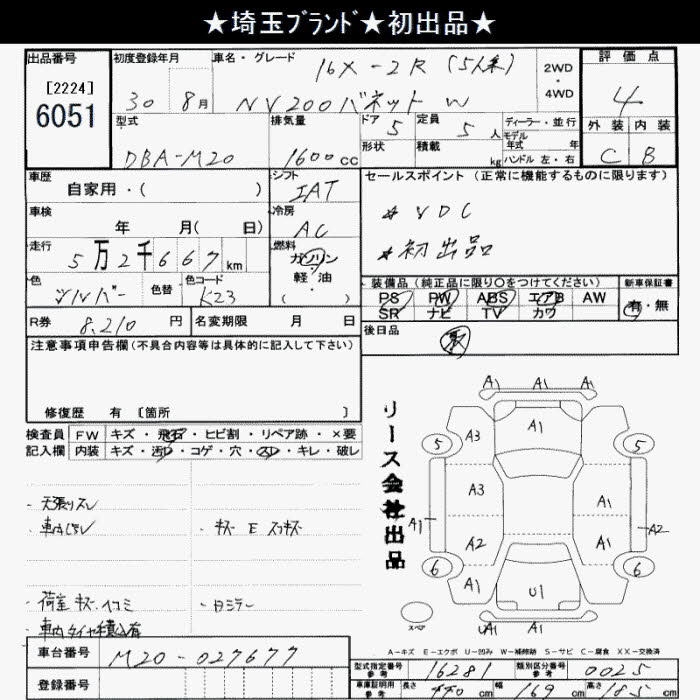 ★埼玉ﾌﾞﾗﾝﾄﾞ★初出品★
出品番号 初度登録年月 車名・グレード 16X-2R (5人乗) 2WD・4WD 評価点
[2224] 6051 30 8月 NV200バネット W 4
型式 排気量 ドア 5 定員 5人 ディーラー・並行 外装 内装
モデル年式 年
DBA-M20 1600cc 形状 積載 kg ハンドル 左・右 C B
車歴 自家用・( ) シフト IAT セールスポイント (正常に機能するものに限ります)
車検 年 月( 日) 冷房 AC ★VDC
走行 5万2千667km 燃料 ガソリン 軽・油 ( ) ★初出品
色 シルバー 色替 色コード K23 装備品 (純正品に限り○をつけてください) 新車保証書
PS PW ABS エアB AW 有・無
SR ナビ TV カワ
R券 8,210円 名変期限 月 日 後日品
注意事項申告欄(不具合内容等は具体的に記入して下さい)
修復歴 有 [箇所 ]
検査員 FW キズ・飛石・ヒビ割・リペア跡・×要
記入欄 内装 キズ・汚れ・コゲ・穴・スレ・キレ・破レ
リース会社出品
A1 A1 A1
A3 A1
5 5
A3 A1
A1 A2
A2 A1
6 6
A1 U1 A1
UA1 A1
スペア
・天張りスレ
・車内
・キズ E
・荷室 キズ・ヘコミ
・車内タイヤ積込有
A-キズ E-エクボ U-凹み W-補修跡 S-サビ C-腐食 XX-交換済
車台番号 M20-027677
型式指定番号 参考 16281 類別区分番号 参考 0025
登録番号 車庫証明用 参考 長さ 440cm 幅 169cm 高さ 185cm